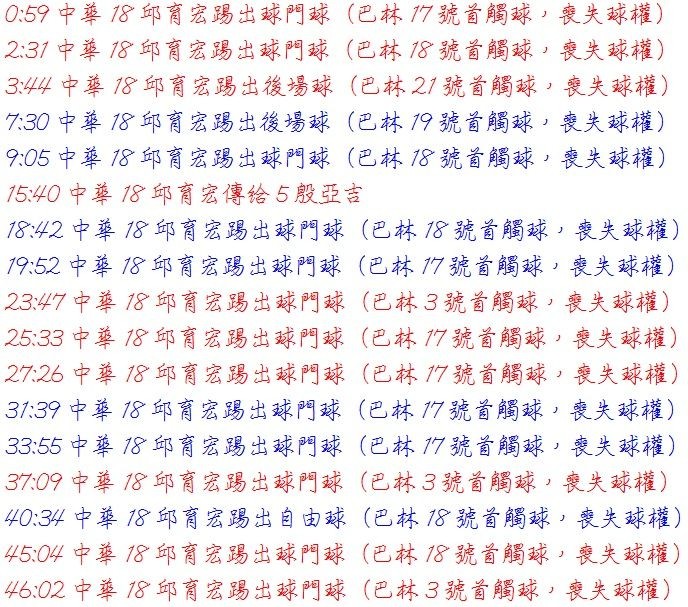 0:59 中華 18 邱育宏踢出球門球（巴林 17 號首觸球，喪失球權）
2:31 中華 18 邱育宏踢出球門球（巴林 18 號首觸球，喪失球權）
3:44 中華 18 邱育宏踢出後場球（巴林 21 號首觸球，喪失球權）
7:30 中華 18 邱育宏踢出後場球（巴林 19 號首觸球，喪失球權）
9:05 中華 18 邱育宏踢出球門球（巴林 18 號首觸球，喪失球權）
15:40 中華 18 邱育宏傳給 5 殷亞吉
18:42 中華 18 邱育宏踢出球門球（巴林 18 號首觸球，喪失球權）
19:52 中華 18 邱育宏踢出球門球（巴林 17 號首觸球，喪失球權）
23:47 中華 18 邱育宏踢出球門球（巴林 3 號首觸球，喪失球權）
25:33 中華 18 邱育宏踢出球門球（巴林 17 號首觸球，喪失球權）
27:26 中華 18 邱育宏踢出球門球（巴林 17 號首觸球，喪失球權）
31:39 中華 18 邱育宏踢出球門球（巴林 17 號首觸球，喪失球權）
33:55 中華 18 邱育宏踢出球門球（巴林 17 號首觸球，喪失球權）
37:09 中華 18 邱育宏踢出球門球（巴林 3 號首觸球，喪失球權）
40:34 中華 18 邱育宏踢出自由球（巴林 18 號首觸球，喪失球權）
45:04 中華 18 邱育宏踢出球門球（巴林 18 號首觸球，喪失球權）
46:02 中華 18 邱育宏踢出球門球（巴林 3 號首觸球，喪失球權）